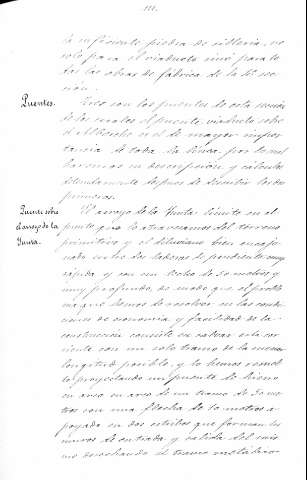 111.
de suficiente piedra de sillería, no
solo para el viaducto sinó para to
das las obras de fábrica de la 4ª sec
ción.
Puentes.
Tres son los puentes de esta sección
de los cuales el puente, viaducto sobre
el Alberche es el de mayor impor
tancia de toda la línea, por lo cual
haremos su descripción y cálculos
detenidamente despues de describir los dos
primeros.
Puente sobre
el arroyo de la
Yunta.
El arroyo de la Yunta límite en el
punto que lo atravesamos del terreno
primitivo y el diluviano bien encajo
nado entre dos laderas de pendiente muy
rápida, y con un lecho de 50 metros y
muy profundo, de modo que el proble
ma que hemos de resolver en las condi
ciones de economía y facilidad de la
construcción consiste en salvar esta cor
riente con un solo tramo de la menor
longitud posible, y lo hemos resuel
to proyectando un puente de hierro
en arco de un tramo de 50 me
tros con una flecha de 10 metros a
poyado en dos estribos que forman los
muros de entrada y salida del mis
mo desechando el tramo metálico